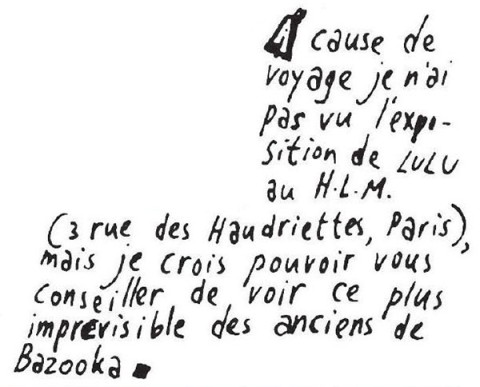 A cause de
voyage je n'ai
pas vu l'expo-
sition de LULU
au H.L.M.
(3 rue des Haudriettes, Paris),
mais je crois pouvoir vous
conseiller de voir ce plus
imprévisible des anciens de
Bazooka.